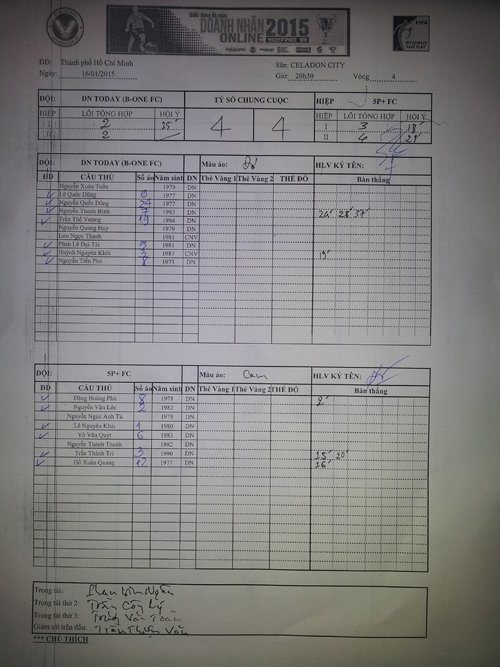 DOANH NHÂN 2015
ONLINE SERIE B
FIFA
ĐĐ: Thành phố Hồ Chí Minh Sân: CELADON CITY
Ngày: 16/01/2015 Giờ: 20h30 Vòng 4
ĐỘI: DN TODAY (B-ONE FC) TỶ SỐ CHUNG CUỘC HIỆP 5P+ FC
HIỆP LỖI TỔNG HỢP HỘI Ý 4 4 LỖI TỔNG HỢP HỘI Ý
I 2 35' I 3 18'
II 2 II 4 21'
ĐỘI: DN TODAY (B-ONE FC) Màu áo: Đỏ HLV KÝ TÊN:
ĐD CẦU THỦ Số áo Năm sinh DN Thẻ Vàng 1 Thẻ Vàng 2 THẺ ĐỎ Bàn thắng
Nguyễn Xuân Tuấn 1979 DN
Lê Quốc Dũng 0 1977 DN
Nguyễn Quốc Dũng 24 1977 DN
Nguyễn Thanh Bình 7 1983 DN 24' 28' 37'
Trần Thế Vương 19 1984 DN
Nguyễn Quang Huy 1979 DN
Lưu Ngọc Thanh 1981 CNV
Phan Lê Đại Tài 5 1981 DN
Huỳnh Nguyên Khôi 3 1987 CNV 19'
Nguyễn Tiến Phú 8 1973 DN
ĐỘI: 5P+ FC Màu áo: Cam HLV KÝ TÊN:
ĐD CẦU THỦ Số áo Năm sinh DN Thẻ Vàng 1 Thẻ Vàng 2 THẺ ĐỎ Bàn thắng
Đặng Hoàng Phú 8 1978 DN 2'
Nguyễn Văn Lộc 2 1982 DN
Nguyễn Ngọc Anh Tú 1978 DN
Lê Nguyên Khải 1 1980 DN
Võ Văn Quýt 6 1983 DN
Nguyễn Thành Thanh 1982 DN
Trần Thành Trí 3 1990 DN 15' 20'
Hồ Xuân Quang 17 1977 DN 16'
Trọng tài: Phan
Trọng tài thứ 2: Trần Công
Trọng tài thứ 3: Văn Toàn
Giám sát trận đấu: Trần Văn
*** CHÚ THÍCH